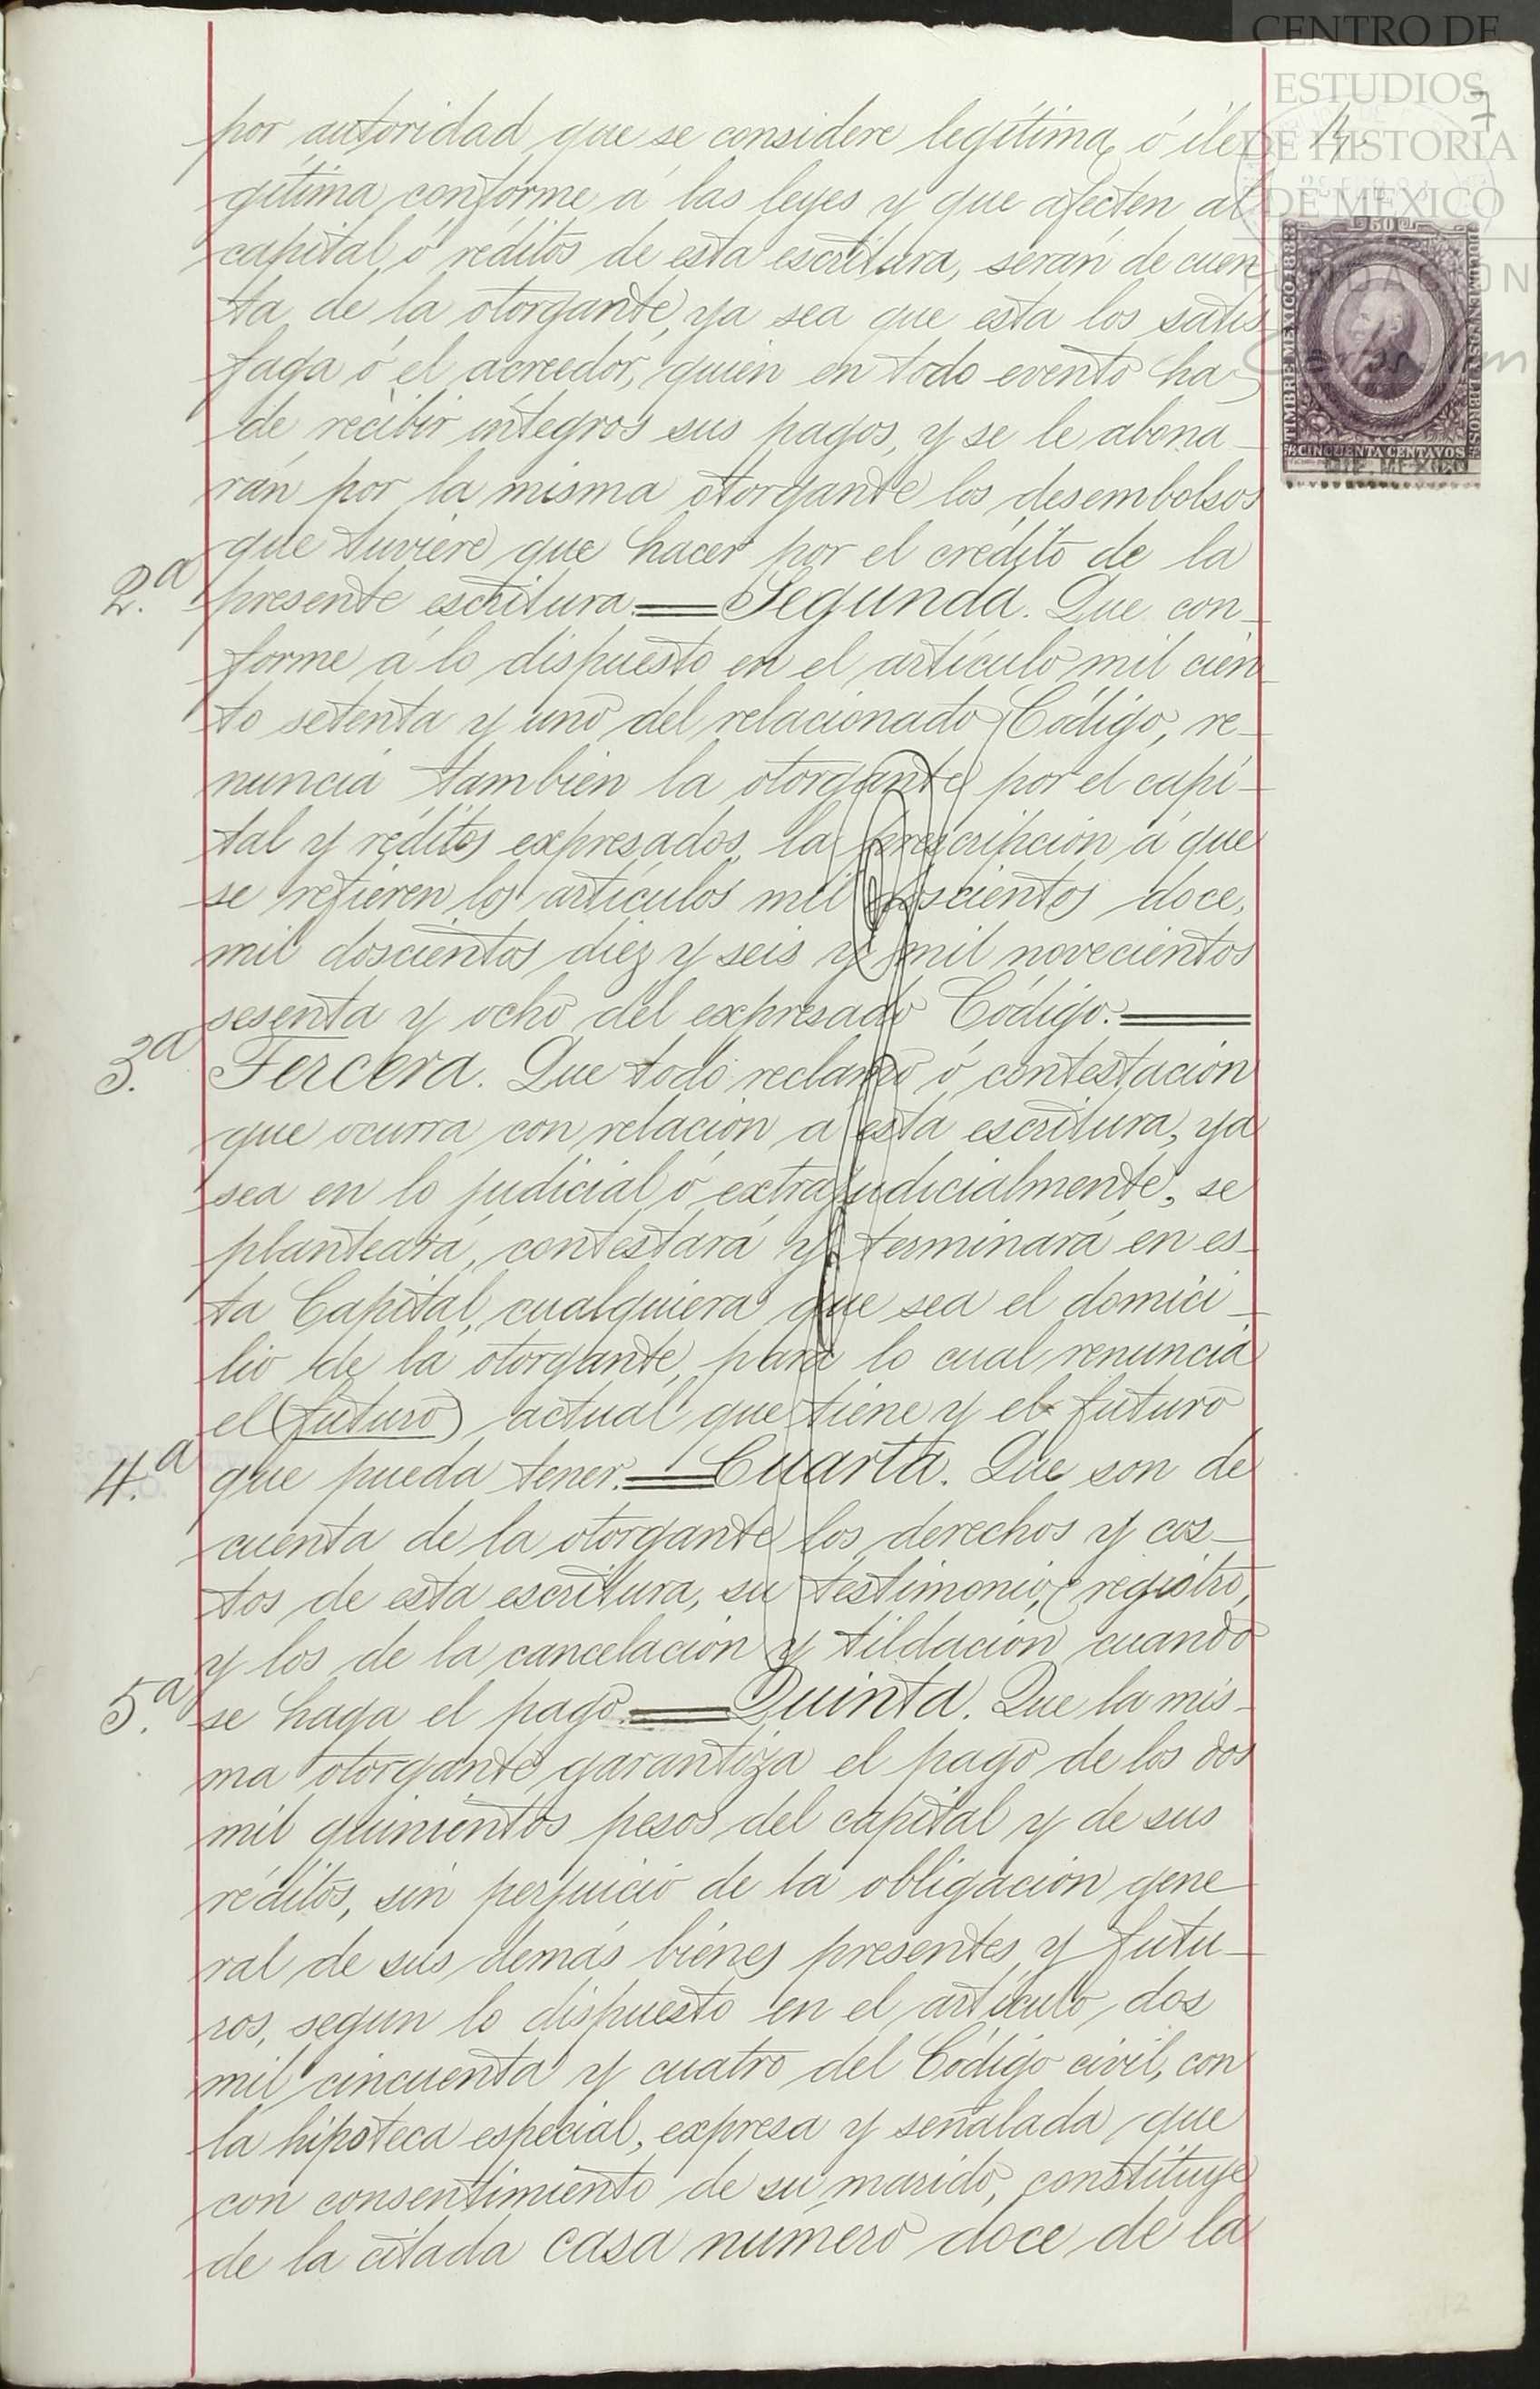 CENTRO DE
ESTUDIOS
DE HISTORIA
DE MEXICO
FUNDACIÓN
7
14.
50
TIMBRE MEXICO 1883
DOCUMENTOS Y LIBROS
CINCUENTA CENTAVOS
DE MEXICO
por autoridad que se considere legítima ó ile
gítima conforme á las leyes y que afecten al
capital ó réditos de esta escritura, serán de cuen
ta de la otorgante, ya sea que esta los satis
faga ó el acreedor, quien en todo evento ha
de recibir íntegros sus pagos, y se le abona_
rán por la misma otorgante los desembolsos
que tuviere que hacer por el crédito de la
2.a presente escritura.== Segunda. Que con_
forme á lo dispuesto en el artículo mil cien_
to setenta y uno del relacionado Código, re_
nuncia también la otorgante por el capi_
tal y réditos expresados, la prescripción á que
se refieren los artículos mil doscientos doce,
mil doscientos diez y seis y mil novecientos
sesenta y ocho del expresado Código.==
3.a Tercera. Que todo reclamo ó contestación
que ocurra con relación a esta escritura, ya
sea en lo judicial ó extrajudicialmente, se
planteará, contestará y terminará en es_
ta Capital, cualquiera que sea el domici_
lio de la otorgante, para lo cual renuncia
el (futuro) actual que tiene y el futuro
4.a que pueda tener.== Cuarta. Que son de
cuenta de la otorgante los derechos y cos_
tos de esta escritura, su testimonio, registro,
y los de la cancelación y tildación cuando
5.a se haga el pago.== Quinta. Que la mis_
ma otorgante garantiza el pago de los dos
mil quinientos pesos del capital y de sus
réditos, sin perjuicio de la obligación gene
ral de sus demás bienes presentes y futu_
ros, segun lo dispuesto en el artículo dos
mil cincuenta y cuatro del Código civil, con
la hipoteca especial, expresa y señalada que
con consentimiento de su marido, constituye
de la citada casa número doce de la